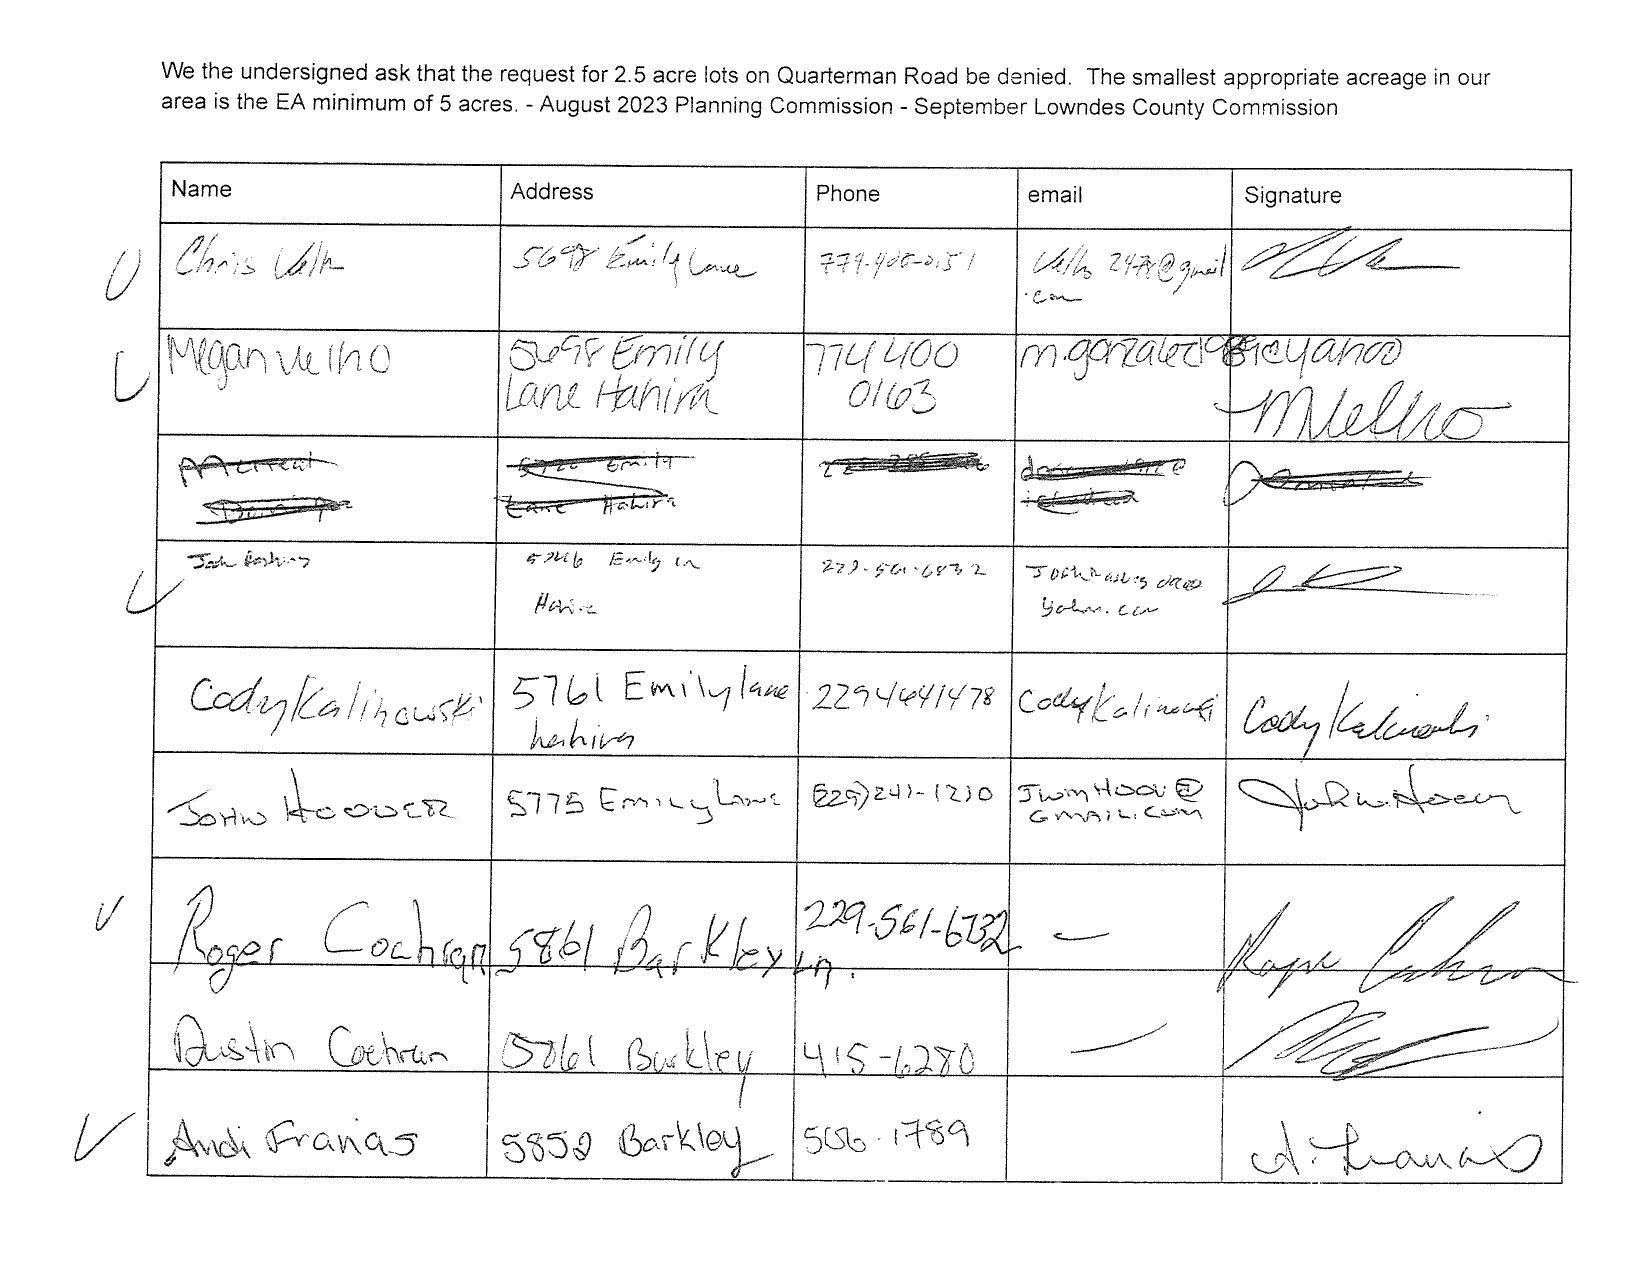 We the undersigned ask that the request for 2.5 acre lots on Quarterman Road be denied. The smallest appropriate acreage in our
area is the EA minimum of 5 acres. - August 2023 Planning Commission - September Lowndes County Commission
Name Address Phone email Signature
Chris 5698 Emily Lane @gmail
.com
Megan Velho 5698 Emily 774 400 @yahoo
Lane Hahira 0163
MVelho
Emily
Lane Hahira
Josh Emily Ln 229-561-6832
yahoo.com
Cody Kalinowski 5761 Emily lane 2294641478 CodyKalinowski Cody Kalinowski
hahira
John Hoover 5775 Emily Lane (229)241-1210 JWMHOOV@ John W. Hoover
GMAIL.COM
Roger Cochran 5861 Barkley Ln. 229-561-6732 — Roger Cochran
Dustin Cochran 5861 Barkley 415-6280 —
Andi Franas 5852 Barkley 506-1789 A. Franas